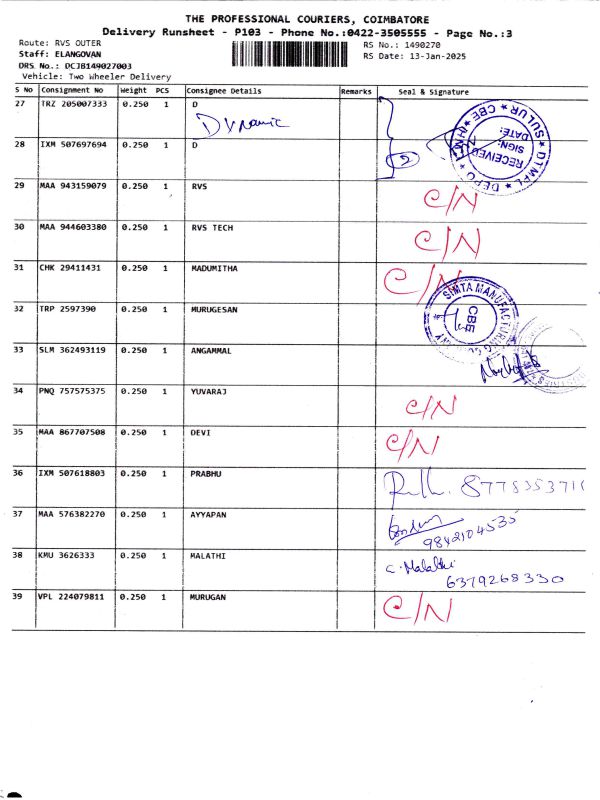 THE PROFESSIONAL COURIERS, COIMBATORE
Delivery Runsheet - P103 - Phone No.:0422-3505555 - Page No.:3
Route: RVS OUTER RS No.: 1490270
Staff: ELANGOVAN RS Date: 13-Jan-2025
DRS No.: DCJB149027003
Vehicle: Two Wheeler Delivery
S No Consignment No Weight PCS Consignee Details Remarks Seal & Signature
27 TRZ 205007333 0.250 1 D
Dynamic
SULUR * CBE
DTMPL * DEPO
RECEIVED
SIGN:
DATE:
28 IXM 507697694 0.250 1 D
2
29 MAA 943159079 0.250 1 RVS C/N
30 MAA 944603380 0.250 1 RVS TECH C/N
31 CHK 29411431 0.250 1 MADUMITHA C/N
32 TRP 2597390 0.250 1 MURUGESAN
SIMTA MANUFACTURING
CBE
33 SLM 362493119 0.250 1 ANGAMMAL
34 PNQ 757575375 0.250 1 YUVARAJ C/N
35 MAA 867707508 0.250 1 DEVI C/N
36 IXM 507618803 0.250 1 PRABHU
37 MAA 576382270 0.250 1 AYYAPAN
9842104535
38 KMU 3626333 0.250 1 MALATHI C. Malathi
6379268330
39 VPL 224079811 0.250 1 MURUGAN C/N